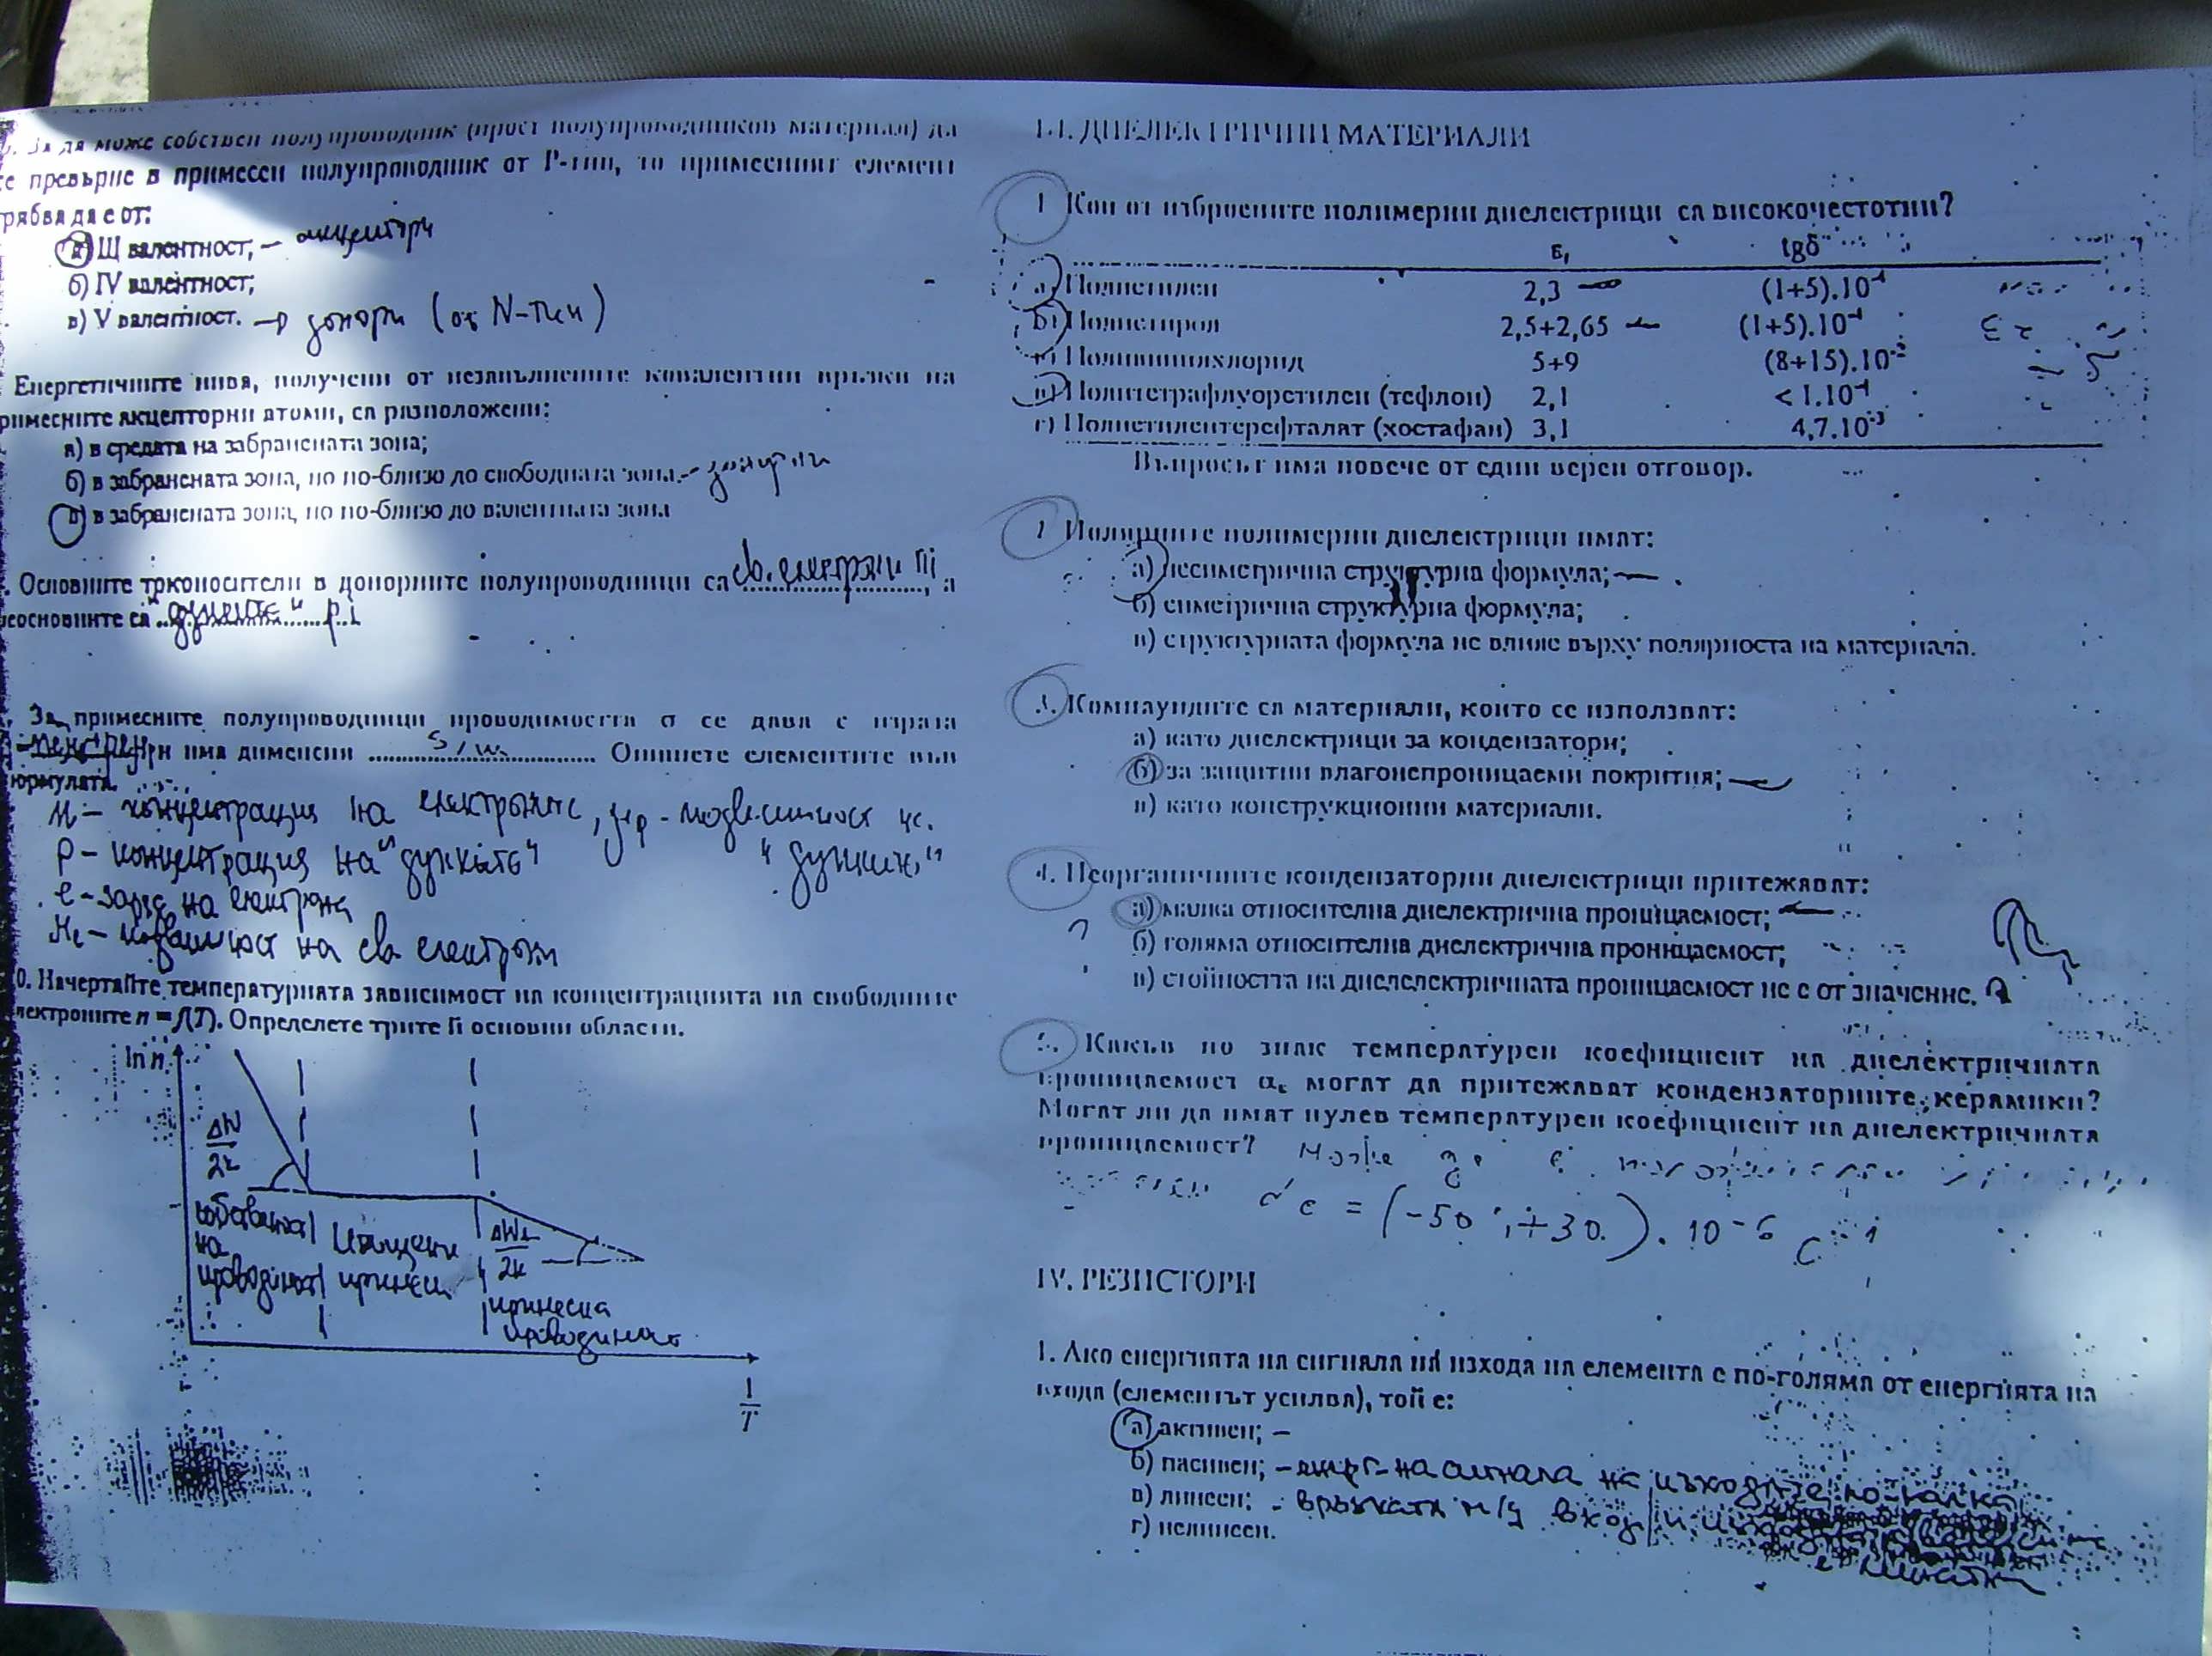 За да може собствен полупроводник (прост полупроводников материал) да
се превърне в примесен полупроводник от P-тип, то примесният елемент
трябва да е от:
а) III валентност; – акцептори
б) IV валентност;
в) V валентност. → донори (от N-тип)
Енергетичните нива, получени от незапълнените ковалентни връзки на
примесните акцепторни атоми, са разположени:
а) в средата на забранената зона;
б) в забранената зона, но по-близо до свободната зона. – донорни
в) в забранената зона, но по-близо до валентната зона
Основните токоносители в донорните полупроводници са св. електрони ni, а
неосновните са "дупките" pi
За примесните полупроводници проводимостта σ се дава с израза
и има дименсия S/m Опишете елементите във
формулата.
n – концентрация на електроните, μp - подвижност на
p – концентрация на "дупките" "дупките"
e – заряд на електрона
μn – подвижност на св. електрони
10. Начертайте температурната зависимост на концентрацията на свободните
електроните n = f(T). Определете трите й основни области.
ln n
ΔW
2k
собствена на проводимост
изтощени примеси
ΔW
2k
примесна проводимост
1
T
III. ДИЕЛЕКТРИЧНИ МАТЕРИАЛИ
1. Кои от изброените полимерни диелектрици са високочестотни?
εr tgδ
а) Полиетилен 2,3 (1÷5).10⁻⁴
б) Полистирол 2,5÷2,65 (1÷5).10⁻⁴
в) Поливинилхлорид 5÷9 (8÷15).10⁻²
в) Политетрафлуоретилен (тефлон) 2,1 < 1.10⁻⁴
г) Полиетилентерефталат (хостафан) 3,1 4,7.10⁻³
Въпросът има повече от един верен отговор.
2. Полярните полимерни диелектрици имат:
а) несиметрична структурна формула;
б) симетрична структурна формула;
в) структурната формула не влияе върху полярноста на материала.
3. Компаундите са материали, които се използват:
а) като диелектрици за кондензатори;
б) за защитни влагонепроницаеми покрития;
в) като конструкционни материали.
4. Неорганичните кондензаторни диелектрици притежават:
а) малка относителна диелектрична проницаемост;
б) голяма относителна диелектрична проницаемост;
в) стойността на диелелектричната проницаемост не е от значение.
5. Какъв по знак температурен коефициент на диелектричната
проницаемост αε могат да притежават кондензаторните керамики?
Могат ли да имат нулев температурен коефициент на диелектричната
проницаемост? Може да е
αε = (-50 ; +30) . 10⁻⁶ C⁻¹
IV. РЕЗИСТОРИ
1. Ако енергията на сигнала на изхода на елемента е по-голяма от енергията на
входа (елементът усилва), той е:
а) активен; –
б) пасивен; – енерг. на сигнала на изхода е по-малка
в) линеен; - връзката м/у вход и изход
г) нелинеен.